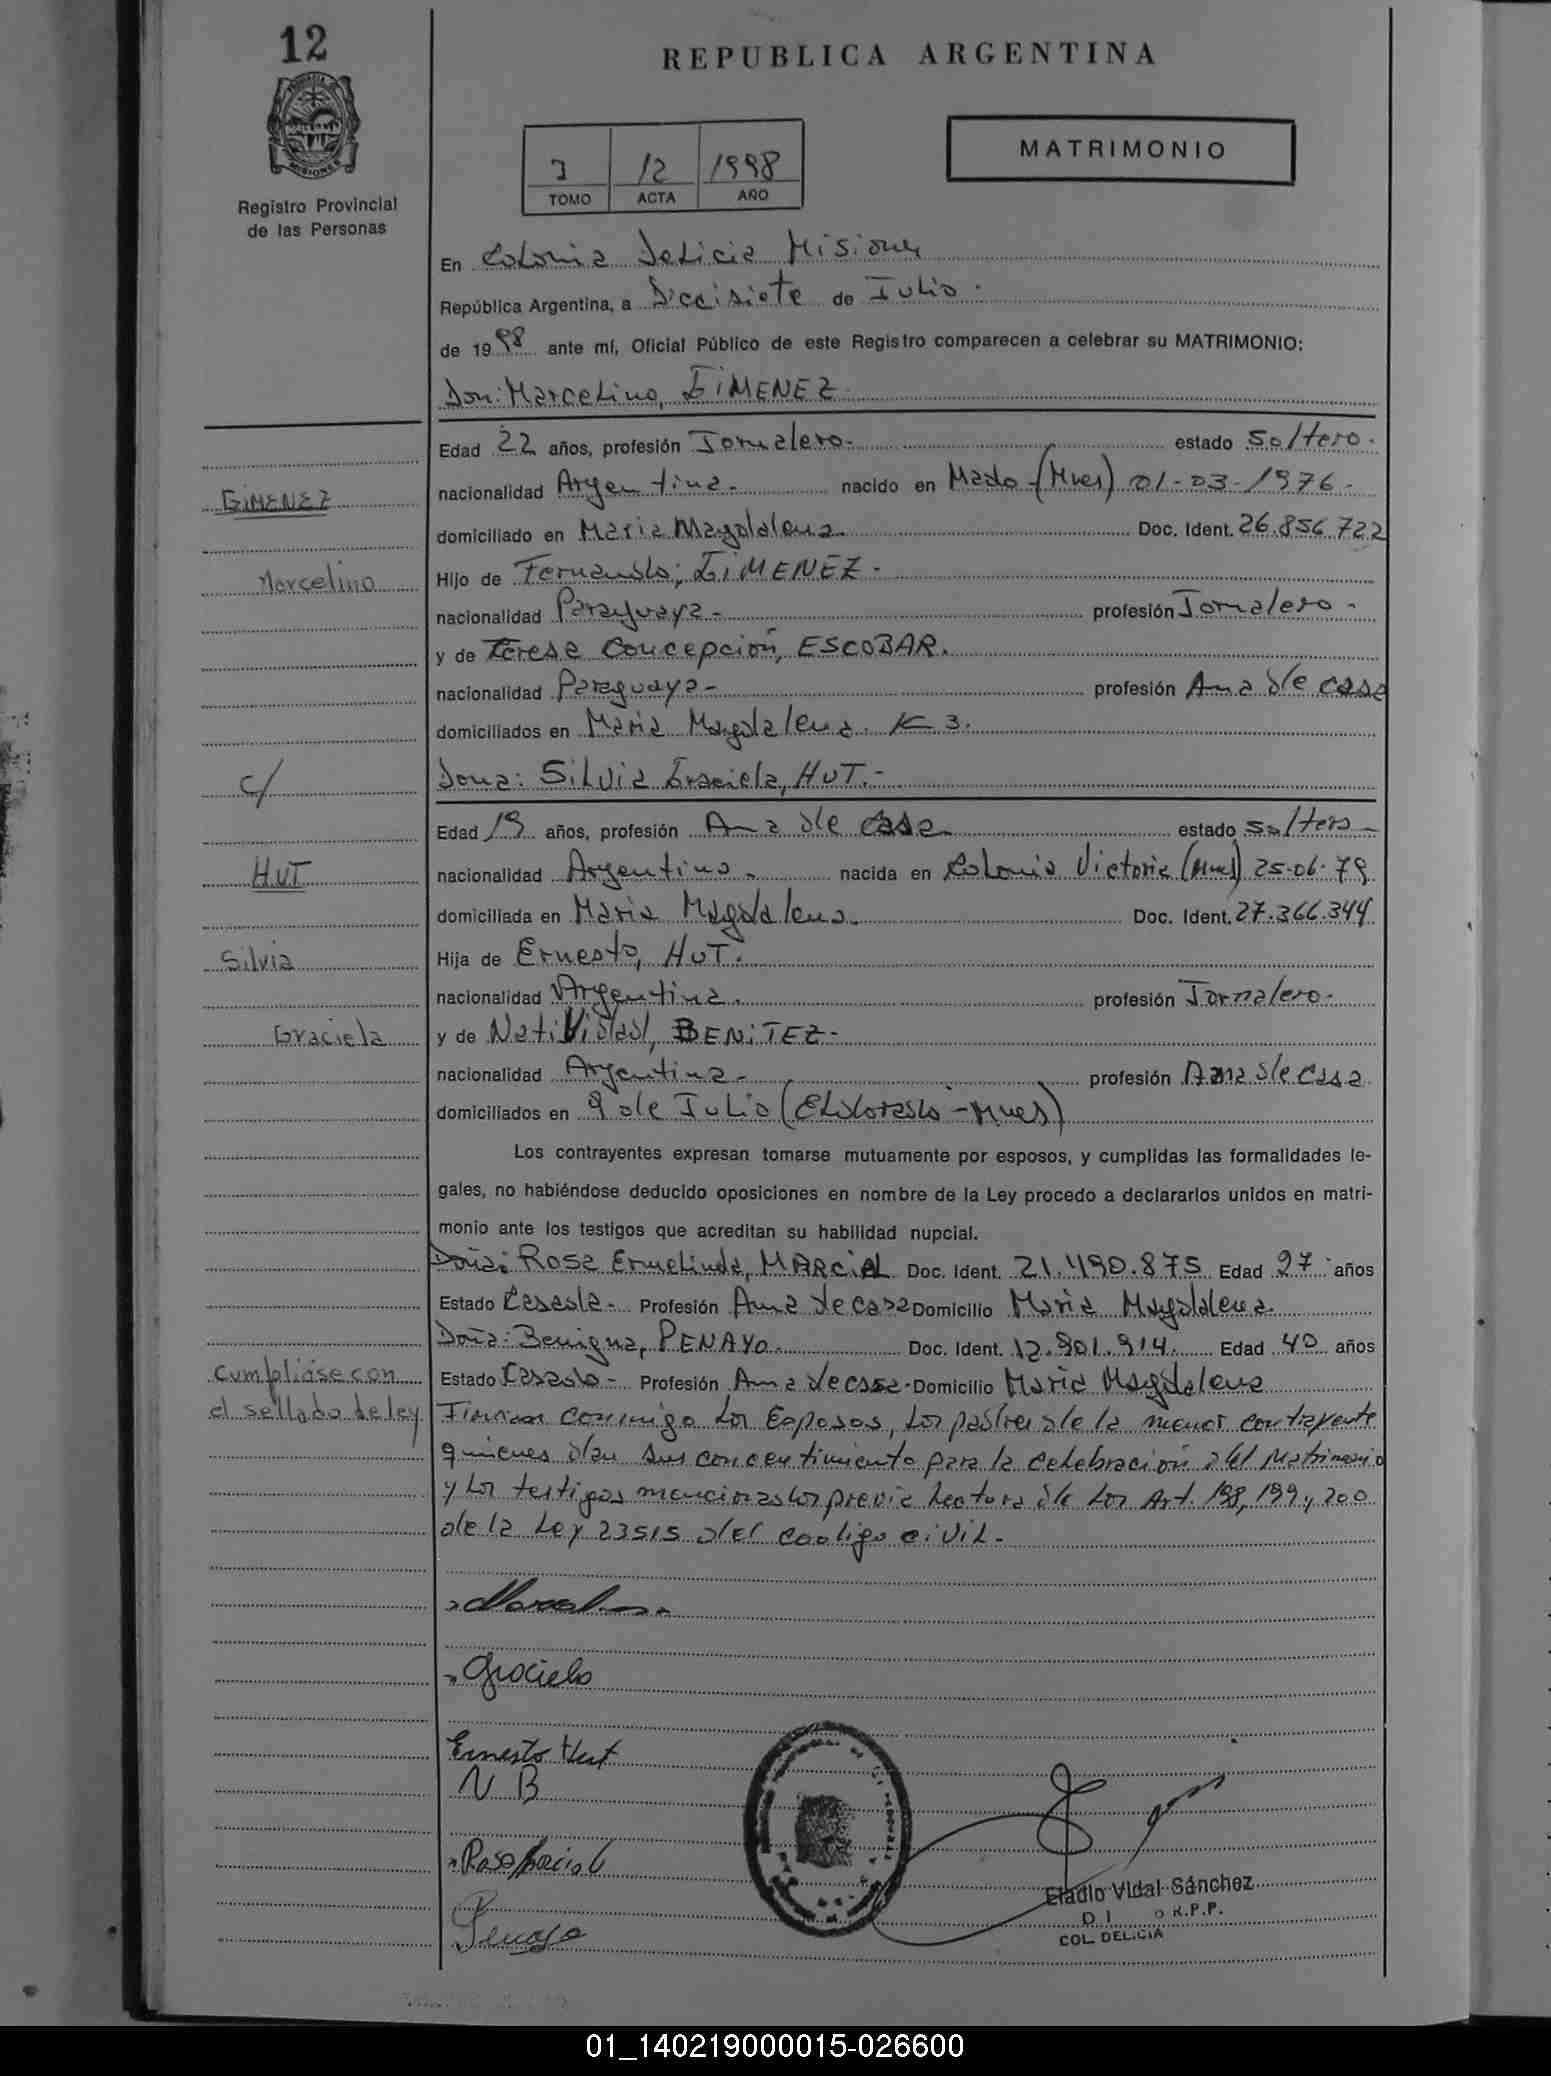 12
REPUBLICA ARGENTINA
MATRIMONIO
12 1998
TOMO ACTA AÑO
Registro Provincial
de las Personas
En Colonia Delicia Misiones
República Argentina, a Diecisiete de Julio.
de 1998 ante mí, Oficial Público de este Registro comparecen a celebrar su MATRIMONIO:
Don: Marcelino, GiMENEZ.
Edad 22 años, profesión Jornalero. estado Soltero.
GiMENEZ
nacionalidad Argentina. nacido en Mado-(Mnes) 01-03-1976-
domiciliado en Maria Magdalena. Doc. Ident. 26.856.722
Marcelino
Hijo de Fernando, GiMENEZ.
nacionalidad Paraguaya- profesión Jornalero-
y de Teresa Concepción, ESCOBAR.
nacionalidad Paraguaya- profesión Ama de casa
domiciliados en Maria Magdalena. K 3.
C/
Dona: Silvia Graciela, HUT.-
Edad 19 años, profesión Ama de casa estado soltera-
HUT
nacionalidad Argentina. nacida en Colonia Victoria (Mnes) 25-06-79
domiciliada en Maria Magdalena. Doc. Ident. 27.366.344
Silvia
Hija de Ernesto, HUT.
nacionalidad Argentina. profesión Jornalero-
Graciela
y de Natividad, BENiTEZ-
nacionalidad Argentina- profesión Ama de Casa
domiciliados en 9 de Julio (Eldorado-Mnes)
Los contrayentes expresan tomarse mutuamente por esposos, y cumplidas las formalidades le-
gales, no habiéndose deducido oposiciones en nombre de la Ley procedo a declararlos unidos en matri-
monio ante los testigos que acreditan su habilidad nupcial.
Doña: Rosa Ermelinda, MARCiAL Doc. Ident. 21.490.875 Edad 27 años
Estado Casada- Profesión Ama de casa Domicilio Maria Magdalena.
Doña: Benigna, PENAYO. Doc. Ident. 12.901.914. Edad 40 años
Estado Casado- Profesión Ama de casa- Domicilio Maria Magdalena
Cumpliáse con
el sellado de ley
Firman conmigo los Esposos, los padres de la menor contrayente
quienes dan sus concentimiento para la celebración del Matrimonio
y los testigos mencionados previa lectura de los Art. 198, 199 y 200
de la Ley 23515 del codigo civil.
Graciela
Ernesto Hut
N B
Rosa Marcial
Penayo
Eladio Vidal Sánchez
R.P.P.
COL. DELICIA
01_140219000015-026600